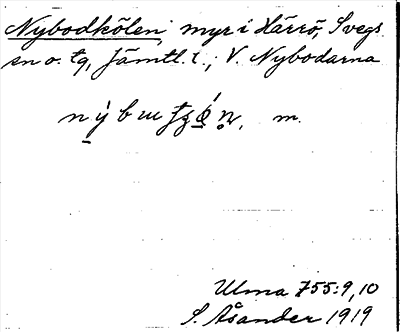 Nybodkölen, myr i Härrö, Svegs
sn o. tg, Jämtl. l., V. Nybodarna
m.
Ulma 755:9,10
S. Åsander 1919